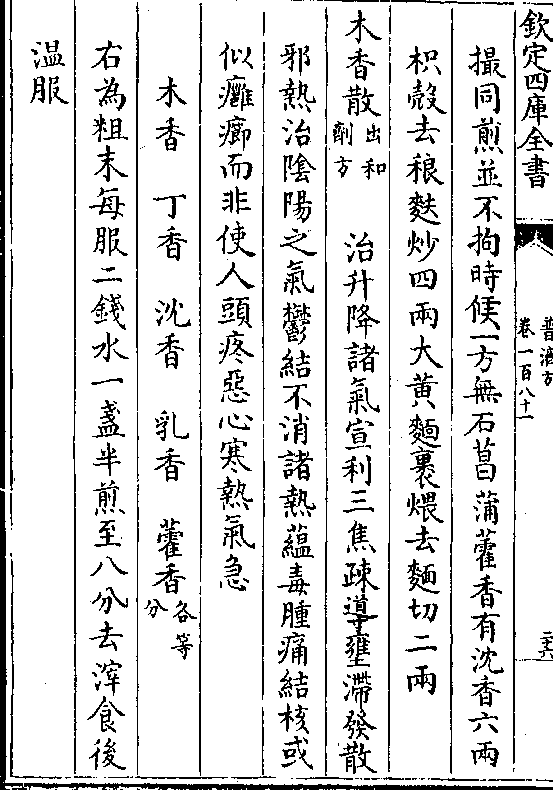 欽定四庫全書
普濟方
卷一百八十一
撮同煎並不拘時候一方無石菖蒲藿香有沈香六兩
枳殼去穰麩炒四兩大黃麵裹煨去麵切二兩
木香散出和劑方 治升降諸氣宣利三焦疎導壅滯發散
邪熱治陰陽之氣鬱結不消諸熱蘊毒腫痛結核或
似癰癤而非使人頭疼惡心寒熱氣急
木香 丁香 沈香 乳香 藿香各等分
右為粗末每服二錢水一盞半煎至八分去滓食後
温服